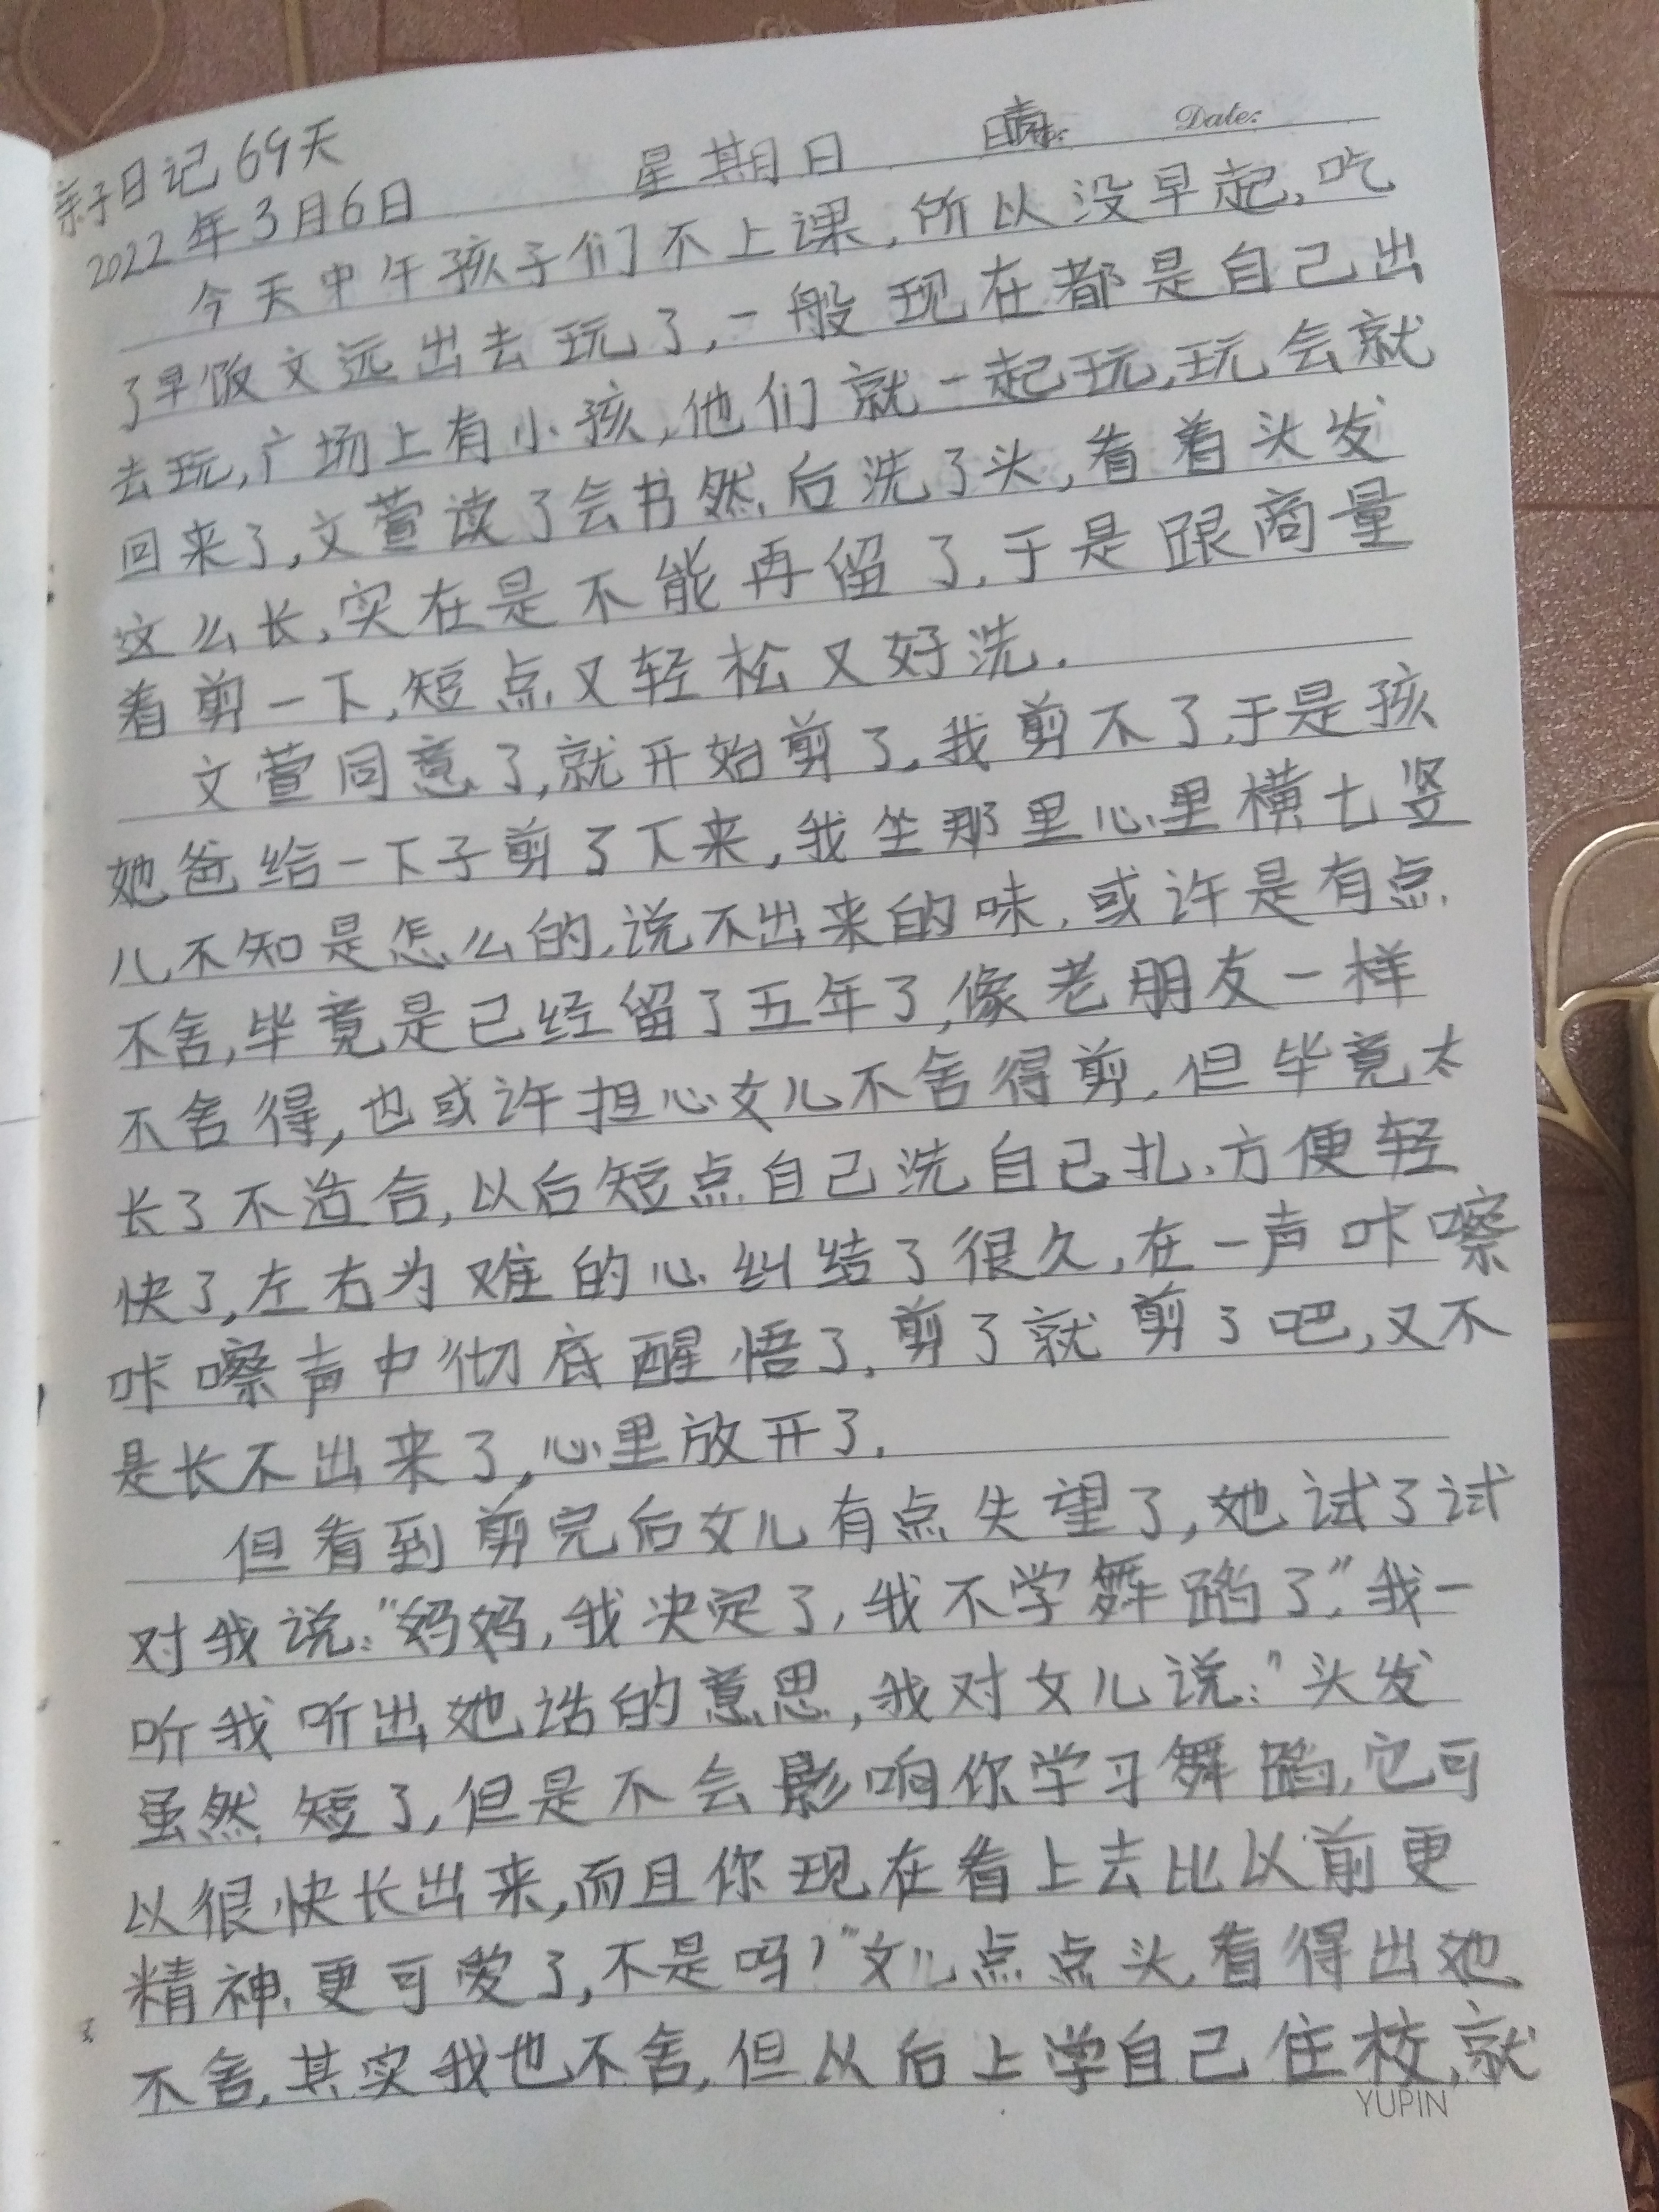 亲子日记69天
2022年3月6日 星期日 晴 Date:
今天中午孩子们不上课,所以没早起,吃
了早饭文远出去玩了,一般现在都是自己出
去玩,广场上有小孩,他们就一起玩,玩会就
回来了,文萱读了会书然后洗了头,看着头发
这么长,实在是不能再留了,于是跟商量
着剪一下,短点又轻松又好洗.
文萱同意了,就开始剪了,我剪不了,于是孩
她爸给一下子剪了下来,我坐那里心里横七竖
八,不知是怎么的,说不出来的味,或许是有点
不舍,毕竟是已经留了五年了,像老朋友一样
不舍得,也或许担心女儿不舍得剪,但毕竟太
长了不适合,以后短点自己洗自己扎,方便轻
快了,左右为难的心纠结了很久,在一声咔嚓
咔嚓声中彻底醒悟了,剪了就剪了吧,又不
是长不出来了,心里放开了.
但看到剪完后女儿有点失望了,她试了试
对我说:"妈妈,我决定了,我不学舞蹈了."我一
听我听出她话的意思,我对女儿说:"头发
虽然短了,但是不会影响你学习舞蹈,它可
以很快长出来,而且你现在看上去比以前更
精神更可爱了,不是吗?"女儿点点头,看得出她
不舍,其实我也不舍,但从后上学自己住校,就
YUPIN